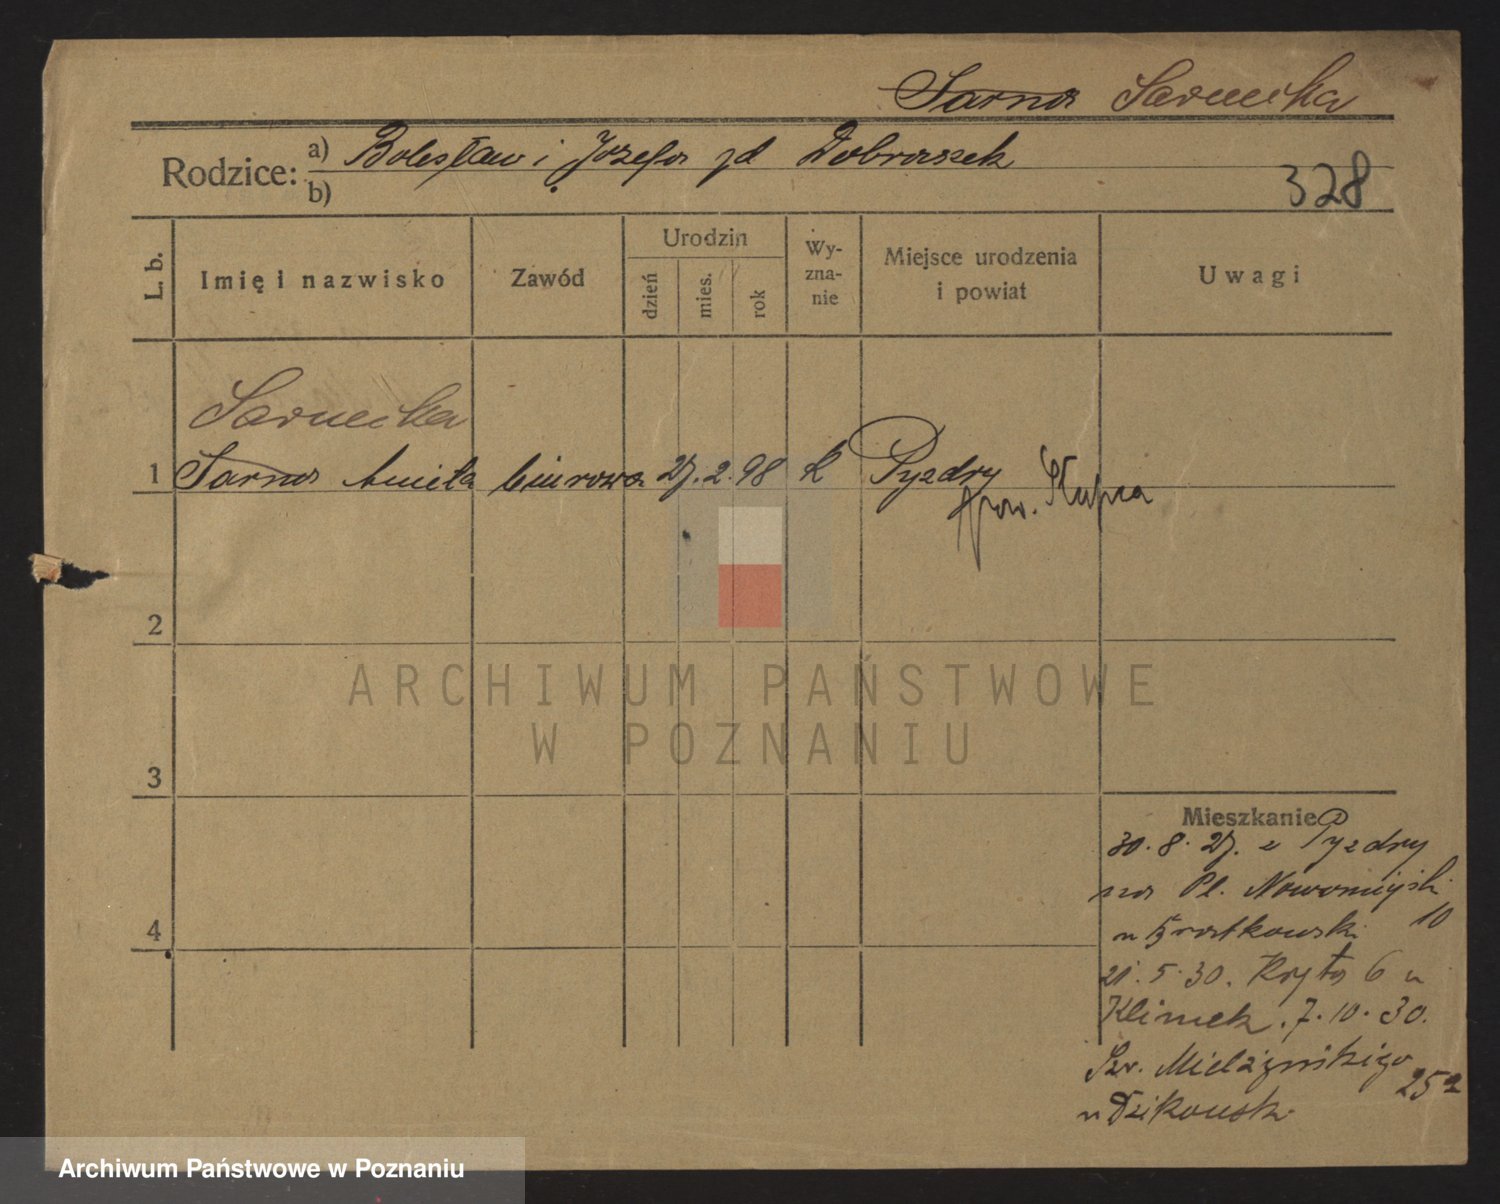 Sarna Sarnecka
Rodzice: a) Bolesław i Józefa zd Dobraszek
b)
328
L. b. Imię i nazwisko Zawód Urodzin dzień mies. rok Wy-zna-nie Miejsce urodzenia i powiat Uwagi
Sarnecka
1 Sarna Aniela biurowa 27. 2. 98 k Pyzdry
pow. Słupca
2
3
4
Mieszkanie
30. 8. 27. z Pyzdry
na Pl. Nowomiejski
10
21. 5. 30. Kręta 6 u
Klimek. 7. 10. 30.
Sew. Mielżyńskiego
25a
u Dzikowski
ARCHIWUM PAŃSTWOWE
W POZNANIU
Archiwum Państwowe w Poznaniu